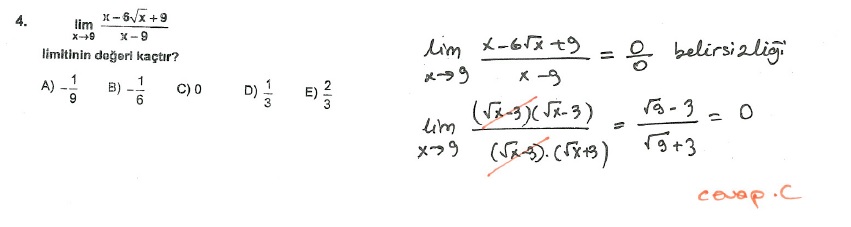 4. lim x→9 (x − 6√x + 9)/(x − 9)
limitinin değeri kaçtır?
A) −1/9 B) −1/6 C) 0 D) 1/3 E) 2/3
lim x→9 (x − 6√x + 9)/(x − 9) = 0/0 belirsizliği
lim x→9 (√x − 3)(√x − 3)/(√x − 3).(√x + 3) = (√9 − 3)/(√9 + 3) = 0
cevap.C